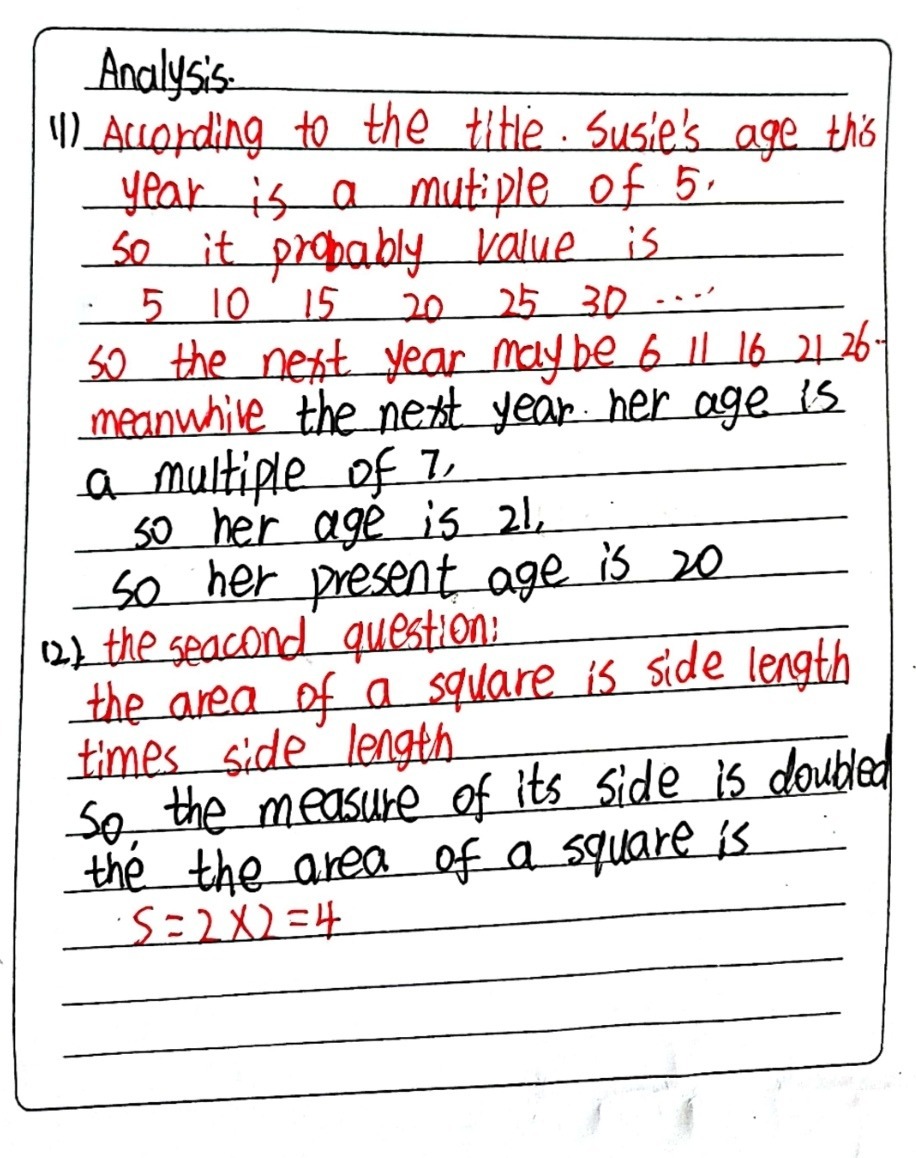 Analysis.
(1) According to the title. Susie's age this
year is a mutiple of 5.
so it probably value is
5 10 15 20 25 30 .....
so the next year maybe 6 11 16 21 26..
meanwhile the next year. her age is
a multiple of 7,
so her age is 21,
so her present age is 20
(2) the seacond question:
the area of a square is side length
times side length
So, the measure of its side is doubled
the the area of a square is
S=2×2=4